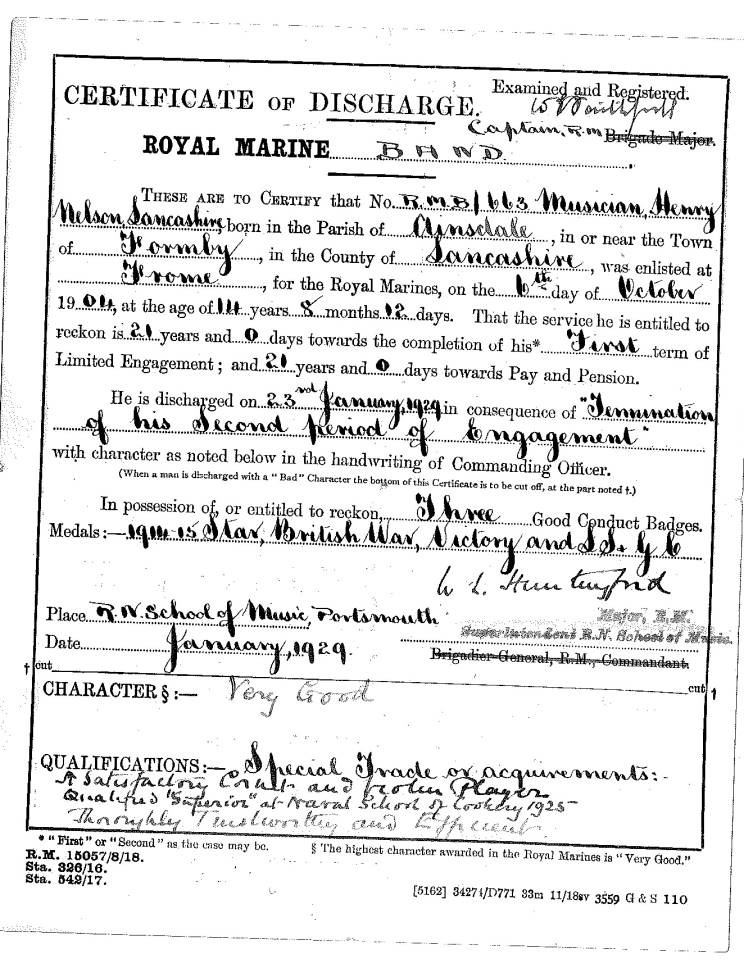 CERTIFICATE OF DISCHARGE.
Examined and Registered.
Captain, R.M. Brigade Major.
ROYAL MARINE BAND.
THESE ARE TO CERTIFY that No. R.M.B/663 Musician, Henry
Nelson Lancashire, born in the Parish of Ainsdale, in or near the Town
of Formby, in the County of Lancashire, was enlisted at
Frome, for the Royal Marines, on the 6th day of October
1904, at the age of 14 years 8 months 12 days. That the service he is entitled to
reckon is 21 years and 0 days towards the completion of his* First term of
Limited Engagement; and 21 years and 0 days towards Pay and Pension.
He is discharged on 23rd January, 1929 in consequence of "Termination
of his Second period of Engagement"
with character as noted below in the handwriting of Commanding Officer.
(When a man is discharged with a "Bad" Character the bottom of this Certificate is to be cut off, at the part noted †.)
In possession of, or entitled to reckon, Three Good Conduct Badges.
Medals:—1914-15 Star, British War, Victory and L.S. & G C
Place R.N. School of Music, Portsmouth
Major, R.M.
Superintendent R.N. School of Music.
Date January, 1929.
Brigadier-General, R.M., Commandant.
† cut cut †
CHARACTER §:— Very Good
QUALIFICATIONS:— Special Trade or acquirements:-
A Satisfactory Cornet and Violin Player
Qualified "Superior" at Naval School of Cookery 1925
Thoroughly Trustworthy and Efficient
* "First" or "Second" as the case may be. § The highest character awarded in the Royal Marines is "Very Good."
R.M. 15057/8/18.
Sta. 326/16.
Sta. 542/17.
[5162] 34274/D771 33m 11/18sv 3559 G & S 110